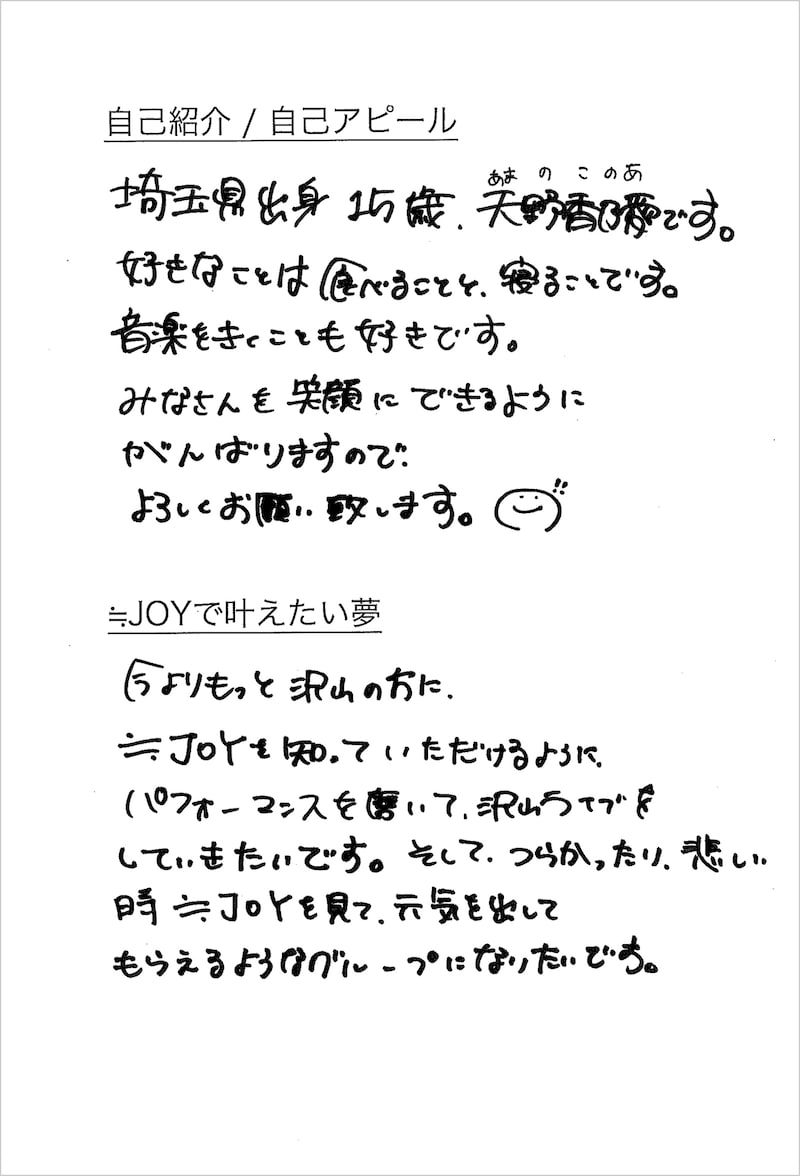 自己紹介 / 自己アピール
あま の こ の あ
埼玉県出身 15歳、天野香乃愛です。
好きなことは食べることと、寝ることです。
音楽をきくことも好きです。
みなさんを笑顔にできるように
がんばりますので、
よろしくお願い致します。!!
≒JOYで叶えたい夢
今よりもっと沢山の方に、
≒JOYを知っていただけるように、
パフォーマンスを磨いて、沢山ライブを
していきたいです。そして、つらかったり、悲しい
時≒JOYを見て、元気を出して
もらえるようなグループになりたいです。